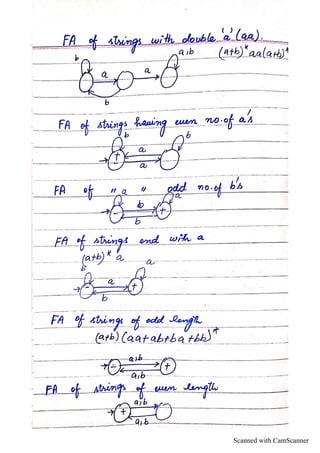 FA of strings with double 'a' (aa).
(a+b)* aa(a+b)*
b
a,b
a
a
b
FA of strings having even no. of a's
b
b
+
a
a
FA of " " odd no. of b's
a
a
b
-
+
b
FA of strings end with a
(a+b)* a
b
a
a
-
+
b
FA of strings of odd length
(a+b) (aa+ab+ba+bb)*
a,b
-
+
a,b
FA of strings of even length
a,b
+
a,b
Scanned with CamScanner